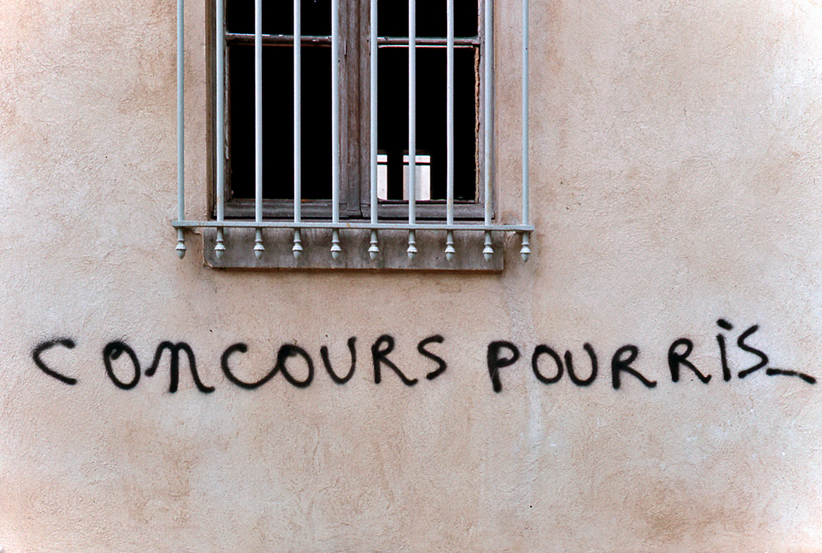 CONCOURS POURRIS_